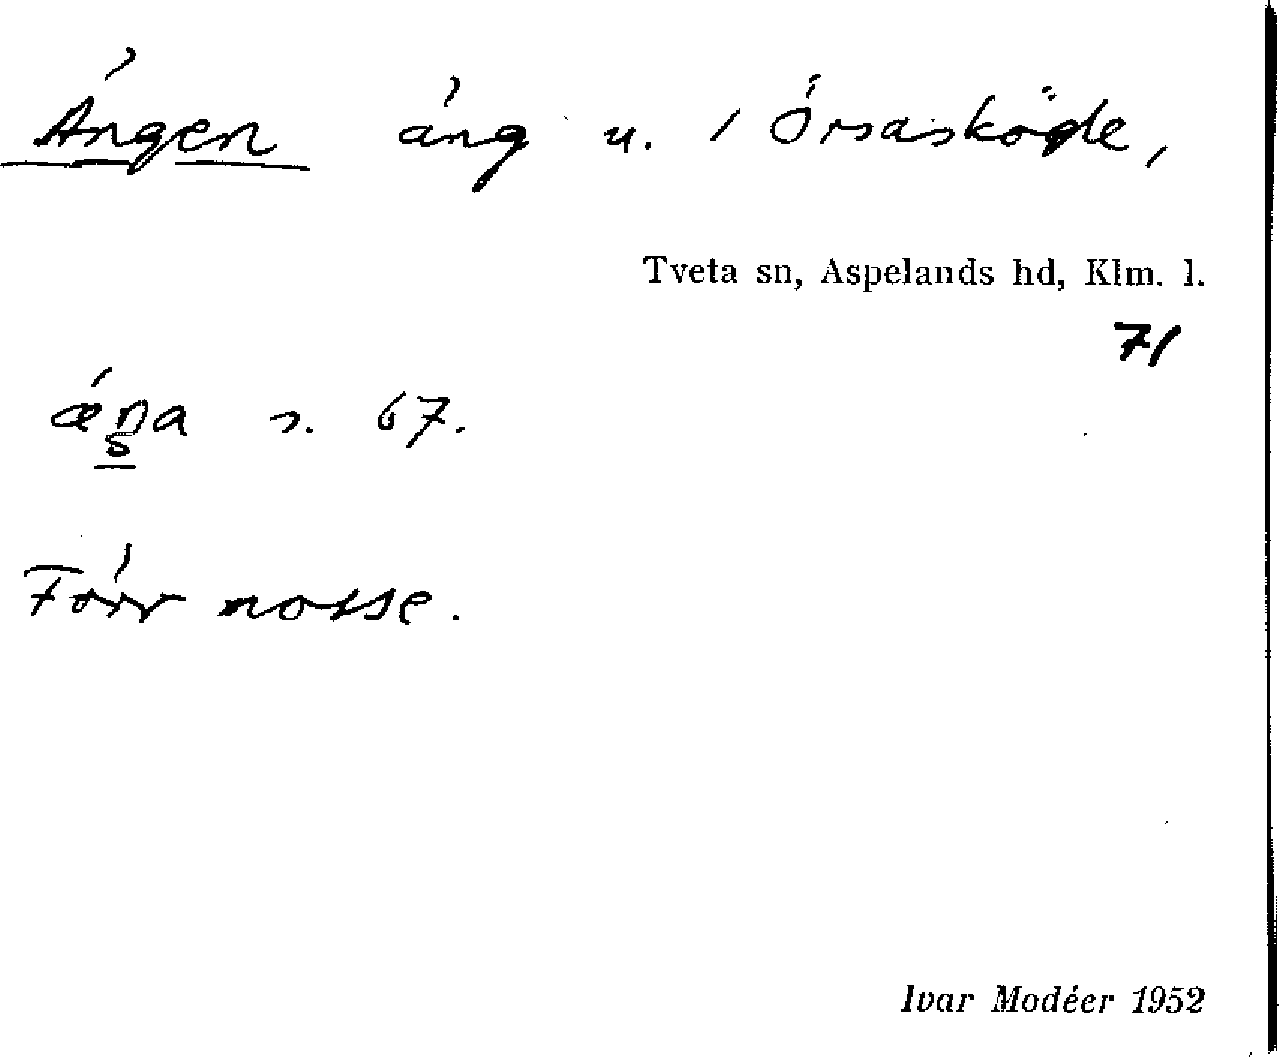 Ängen äng u. / Örsasköde,
Tveta sn, Aspelands hd, Klm. l.
71
s. 67.
Förr mosse.
Ivar Modéer 1952